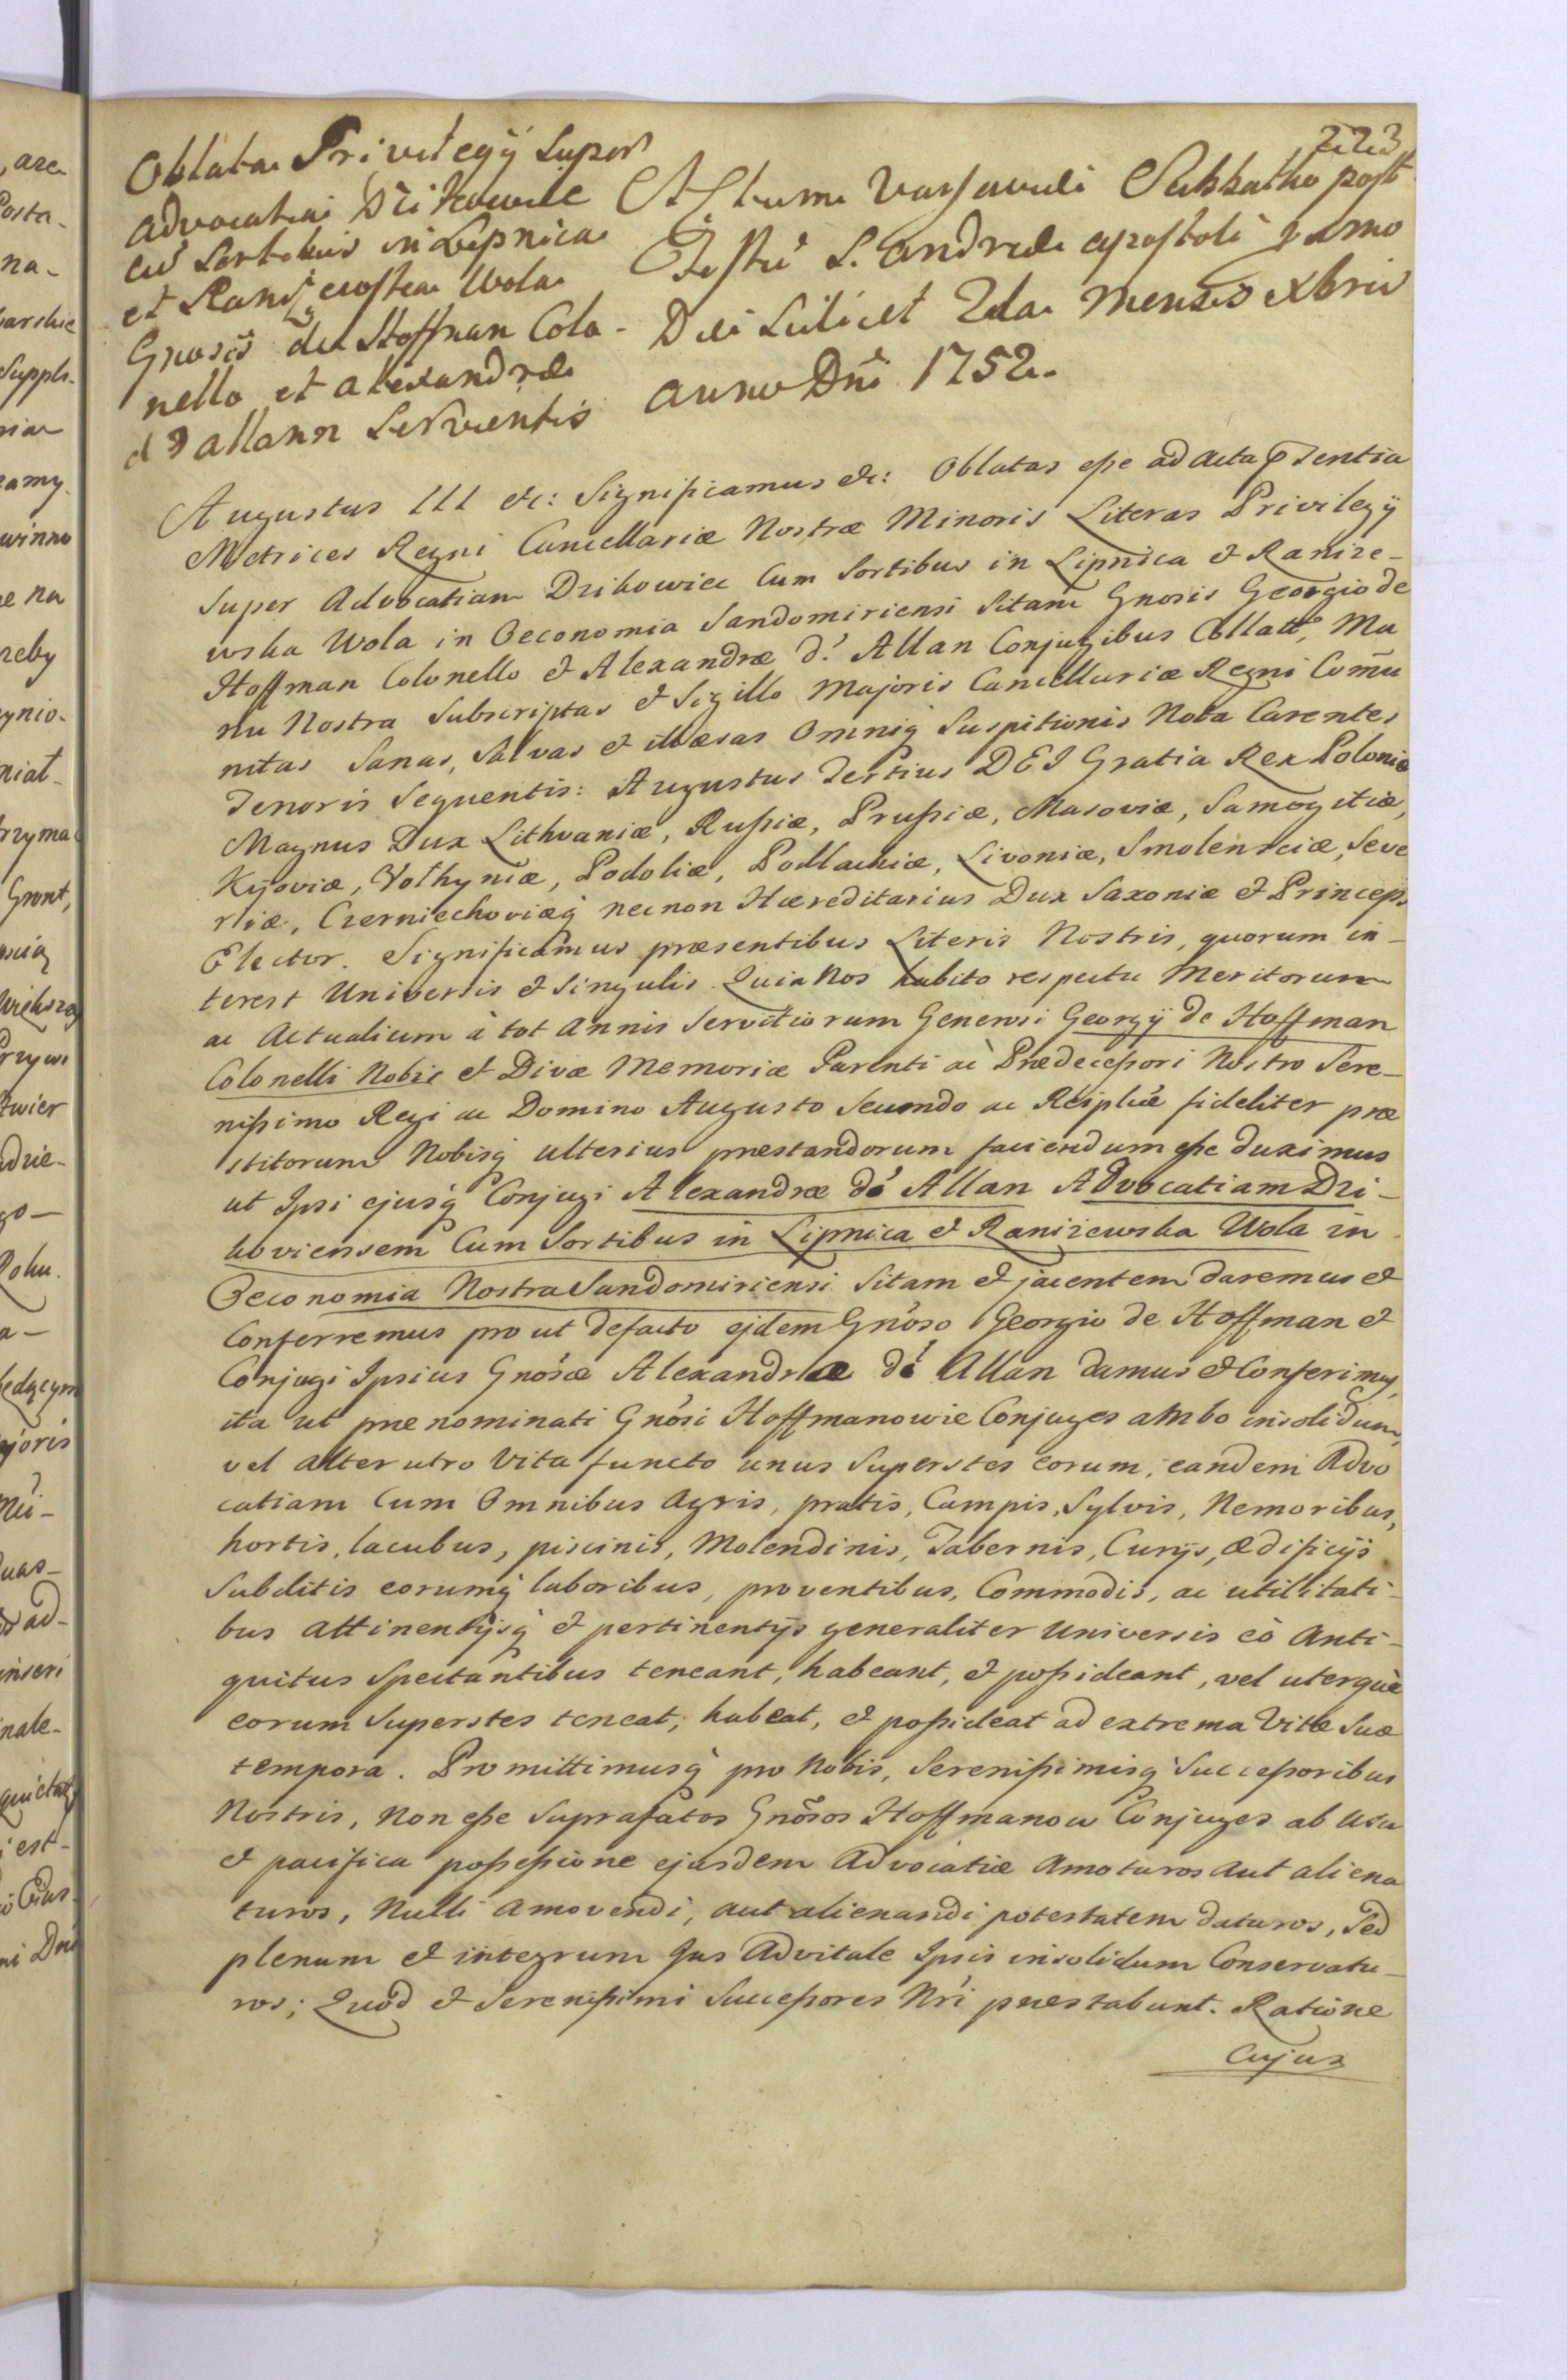 223
Oblata Privilegÿ super
advocatiã Dzikowiec
cũ Sortibus in Lipnica
et Raniżewska Wola
Gnosis de Hoffman Colo-
nello et Alexandræ
d'Allann Servientis
Actum Varsaviæ Sabbatho post
Festũ S. Andreæ apostoli
Die Scilicet 2da Mensis Xbris
anno Dñi 1752.
Augustus III etc: Significamus etc: Oblatas eße ad Acta pñtentia
Metrices Regni Cancellariæ Nostræ Minoris Literas Privilegÿ
super Advocatiam Dzikowiec Cum Sortibus in Lipnica et Raniże-
wska Wola in Oeconomia Sandomiriensi Sitam Gnosis Georgio de
Hoffman Colonello et Alexandræ d' Allan Conjugibus Collatt., Ma
nu Nostra Subscriptas et Sigillo Majoris Cancellariæ Regni Com̃u
nitas Sanas, Salvas et illæsas Omniq̀ Suspitionis Nota Carentes
Tenoris Sequentis: Augustus Tertius DEI Gratia Rex Poloniæ
Magnus Dux Lithvaniæ, Rußiæ, Prußiæ, Masoviæ, Samogitiæ,
Kijoviæ, Volhyniæ, Podoliæ, Podlachiæ, Livoniæ, Smolensciæ, Seve
riæ, Czerniechoviæq̀ necnon Hæreditarius Dux Saxoniæ et Princeps
Elector. Significamus præsentibus Literis Nostris, quorum in-
terest Universis et Singulis Quia Nos habito respectu Meritorum
ac Actualium à tot Annis Servitiorum Generosi Georgÿ de Hoffman
Colonelli Nobis et Divæ Memoriæ Parenti ac Prædeceßori Nostro Sere-
nißimo Regi ac Domino Augusto Secundo ac Reiplicæ fideliter præ
stitorum Nobisq̀ ulterius præstandorum faciendum eße duximus
ut Ipsi ejusq̀ Conjugi Alexandræ dó Allan Advocatiam Dzi-
koviensem Cum Sortibus in Lipnica et Raniżewska Wola in
Oeconomia Nostra Sandomiriensi Sitam et jacentem daremus et
Conferremus pro ut defacto ejdem Gnõso Georgio de Hoffman et
Conjugi Ipsius Gnõsæ Alexandræ dó Allan damus et Conferimus,
ita ut præ nominati Gnõsi Hoffmanowie Conjuges ambo insolidum,
vel alterutro Vita functo unus Superstes eorum, eandem Advo
catiam Cum Omnibus Agris, pratis, Campis, Sylvis, Nemoribus,
hortis, lacubus, piscinis, Molendinis, Tabernis, Curÿs, Ædificÿs
Subditis eorumq̀ laboribus, proventibus, Commodis, ac utilitati-
bus attinentÿsq̀ et pertinentÿs generaliter Universis eò Anti-
quitus Spectantibus teneant, habeant, et poßideant, vel uterquè
eorum Superstes teneat, habeat, et poßideat ad extrema Vitæ Suæ
tempora. Promittimusq̀ pro Nobis, Serenißimisq̀ Succeßoribus
Nostris, Non eße Suprafatos Gnõsos Hoffmanow Conjuges ab Usu
et pacifica poßeßione ejusdem Advocatiæ Amoturos Aut aliena
turos, Nulli amovendi, aut alienandi potestatem daturos, Sed
plenum et integrum Jus Advitale Ipsis insolidum Conservatu-
ros; Quod et Serenißimi Succeßores Nri præstabunt. Ratione
Cujus